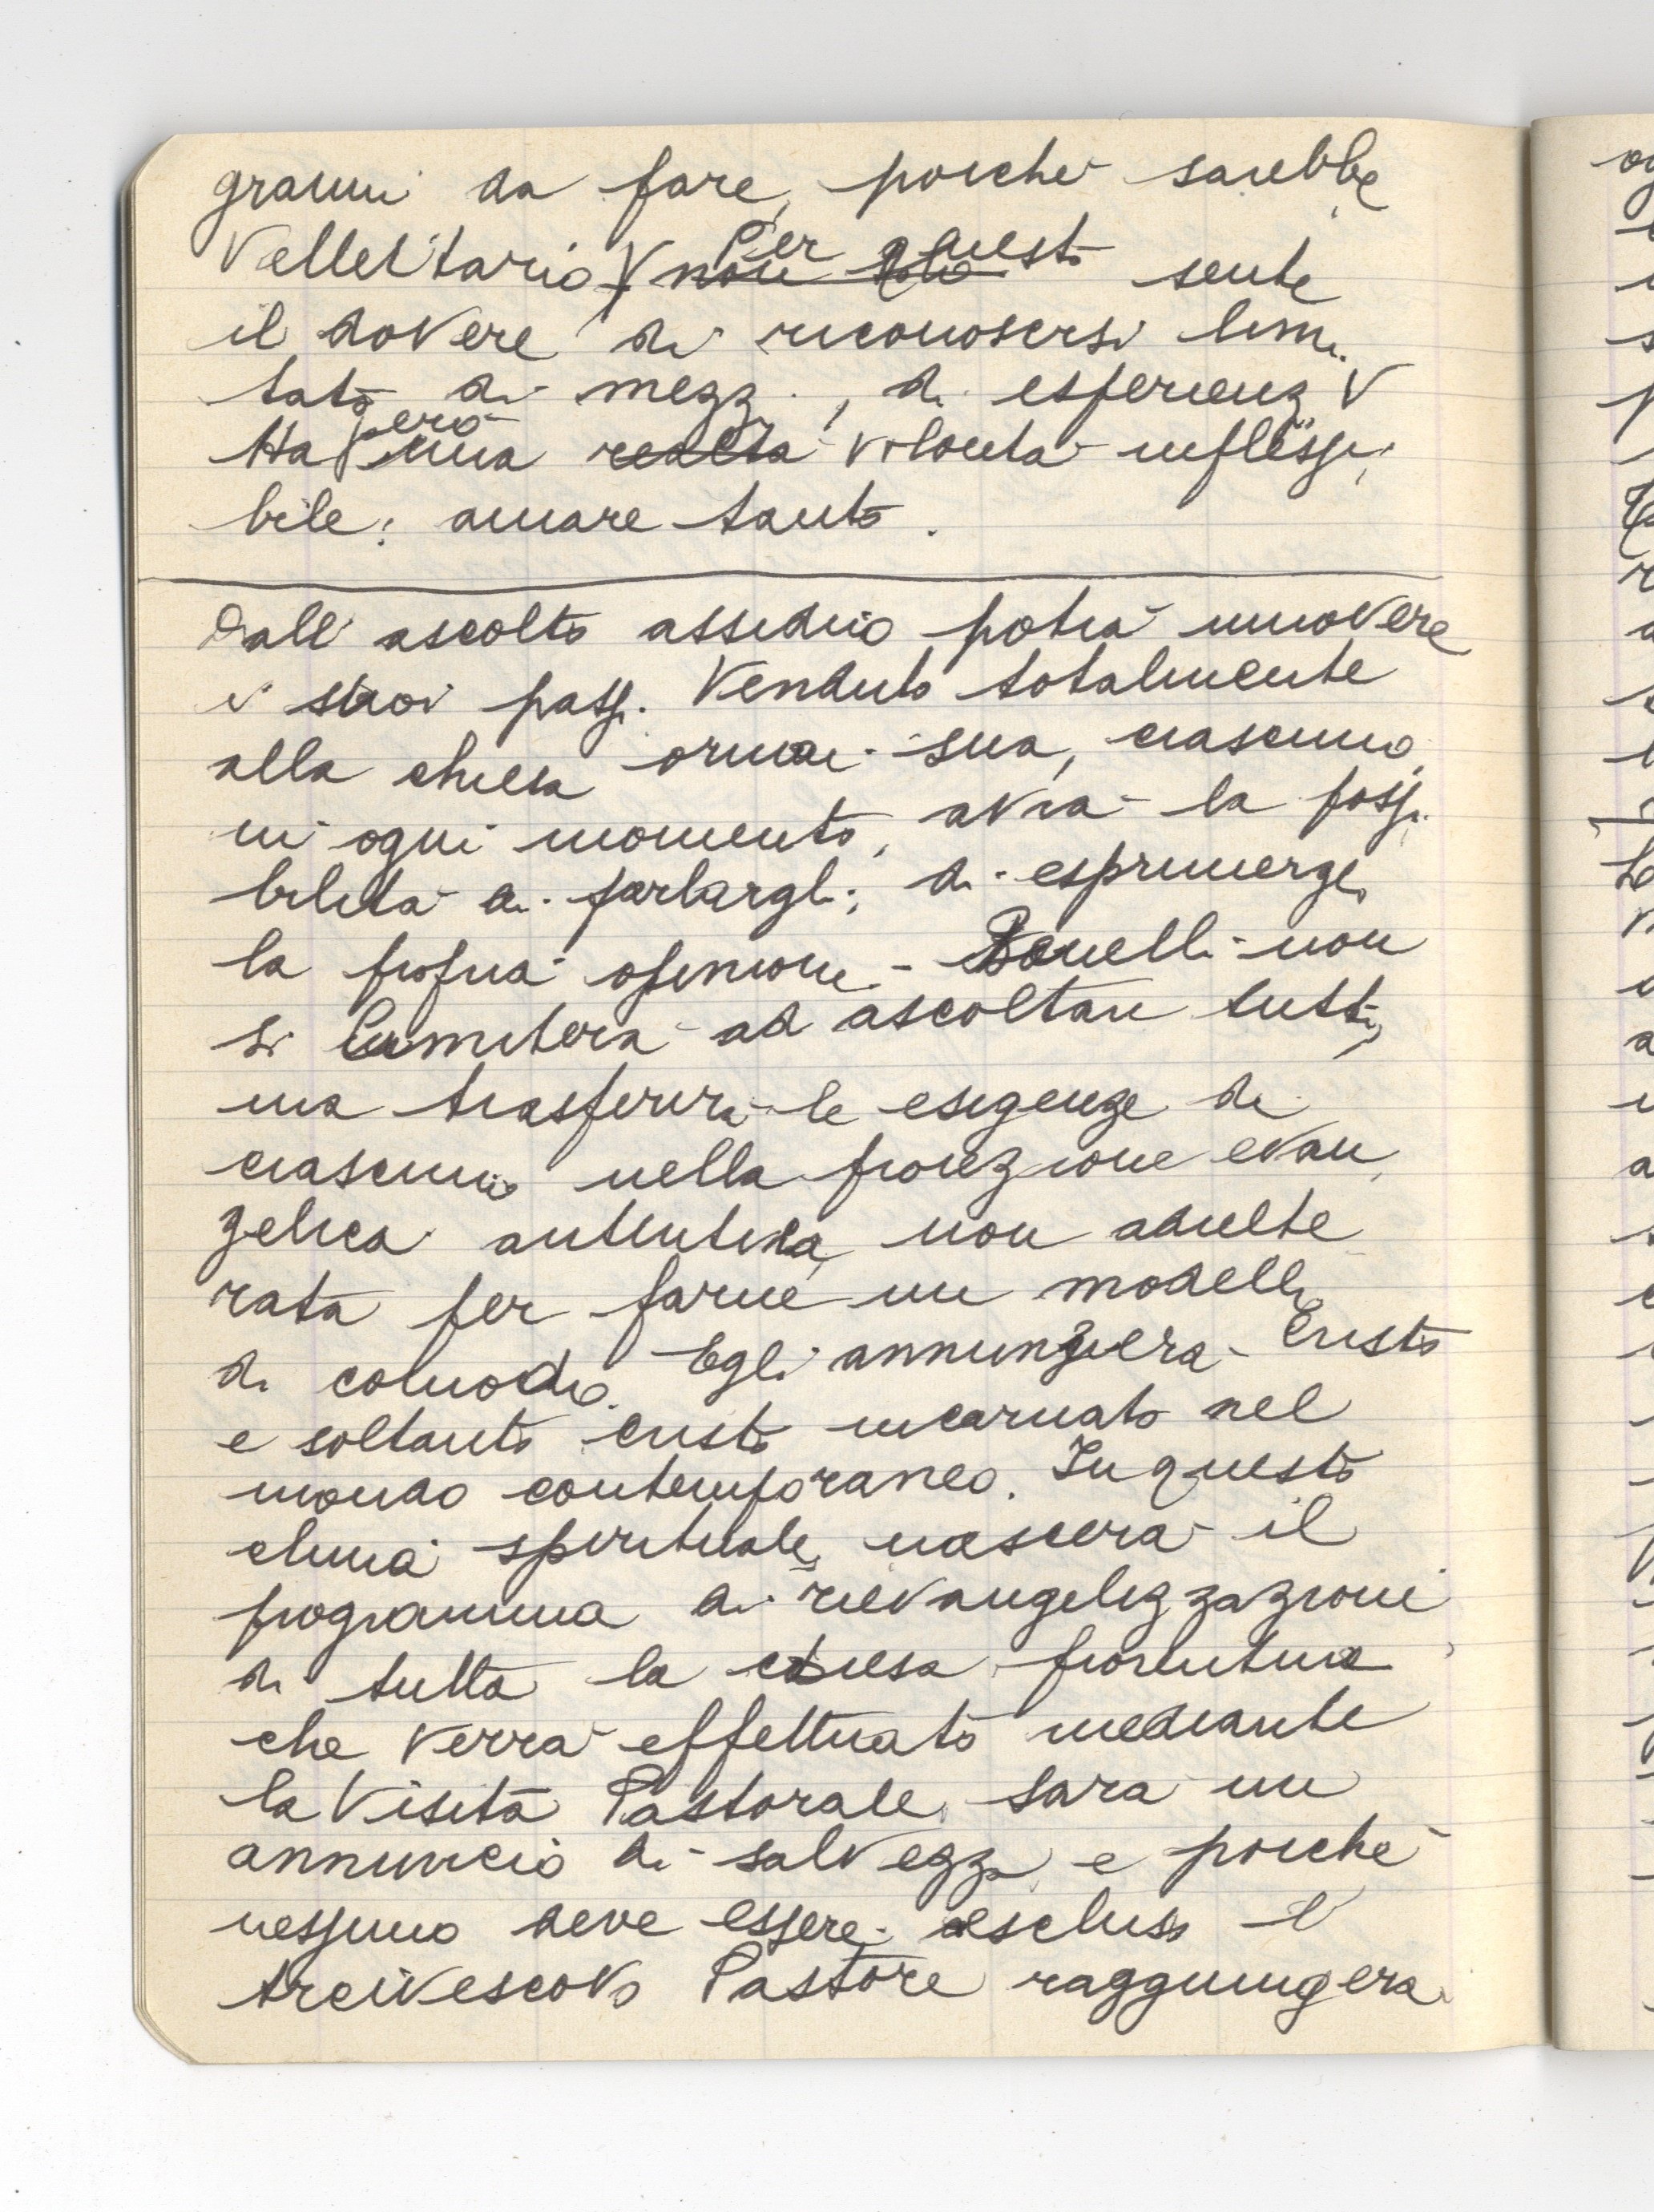 grammi da fare, poiché sarebbe
Velleitario. Per questo sente
il dovere di riconoscersi limi
tato di mezzi, di esperienz
Ha però una realtà volontà inflessi
bile: amare tanto.
Dall'ascolto assiduo potrà muovere
i suoi passi. Venduto totalmente
alla chiesa ormai sua, ciascuno
in ogni momento, avrà la possi
bilità di parlargli, di esprimergli
la propria opinione. Benelli non
si limiterà ad ascoltare tutti,
ma trasferirà le esigenze di
ciascuno nella proiezione evan
gelica autentica, non adulte
rata per farne un modello
di comodo. Egli annunzierà Cristo
e soltanto Cristo incarnato nel
mondo contemporaneo. In questo
clima spirituale nascerà il
programma di rievangelizzazione
di tutta la chiesa fiorentina
che verrà effettuato mediante
la Visita Pastorale, sarà un
annuncio di salvezza e poiché
nessuno deve essere escluso l'
Arcivescovo Pastore raggiungerà